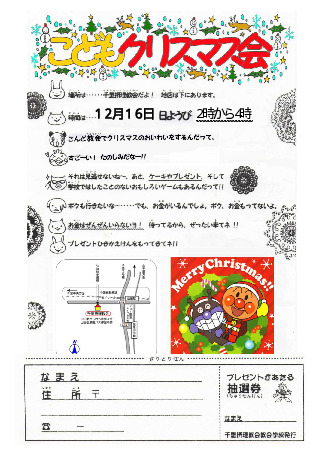 こどもクリスマス会
場所は……千里摂理教会だよ！ 地図は下にあります。
時間は……12月16日 日ようび 2時から4時
こんど教会でクリスマスのおいわいをするんだって。
すごーい！ たのしみだなー!!
それは見逃せないね～。あと、ケーキやプレゼント、そして
学校ではしたことのないおもしろいゲームもあるんだって!!
ボクも行きたいな～……でも、お金がいるんでしょ。ボク、お金もってないよ。
お金はぜんぜんいらないヨ！ 待ってるから、ぜったい来てネ!!
プレゼントひきかえけんをもってきてネ!!
MerryChristmas!!
きりとりせん
なまえ
住所 〒
☎ ー
プレゼントがあたる
抽選券
なまえ
千里摂理教会教会学校発行